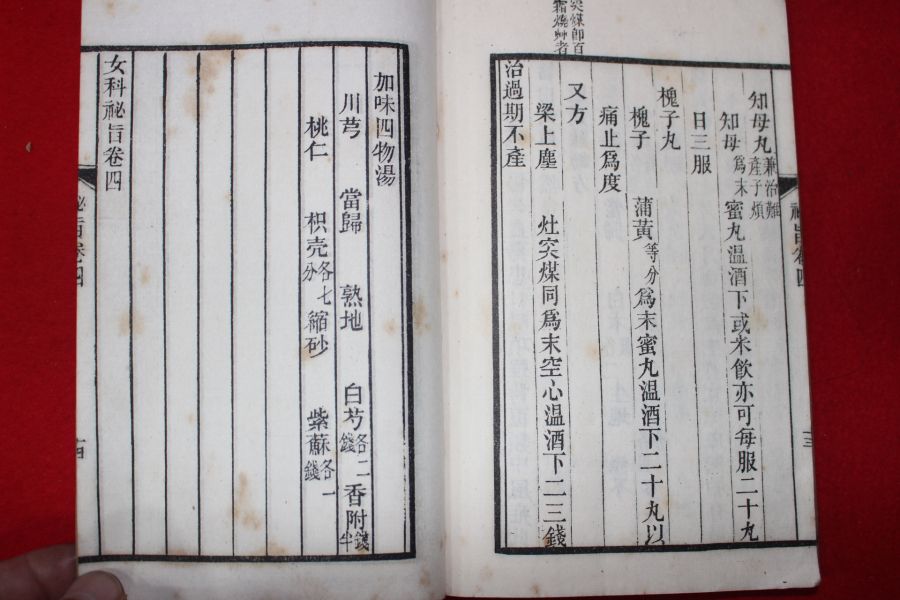 突煤即百
霜燒艸者
知母丸兼治難
產子煩
知母爲末蜜丸温酒下或米飲亦可每服二十丸
日三服
槐子丸
槐子 蒲黃等分爲末蜜丸温酒下二十丸以
痛止爲度
又方
梁上塵 灶突煤同爲末空心温酒下二三錢
治過期不產
加味四物湯
川芎 當歸 熟地 白芍各二錢 香附錢半
桃仁 枳壳各七分 縮砂 紫蘇各一錢
女科祕旨卷四
祕旨卷四
十四